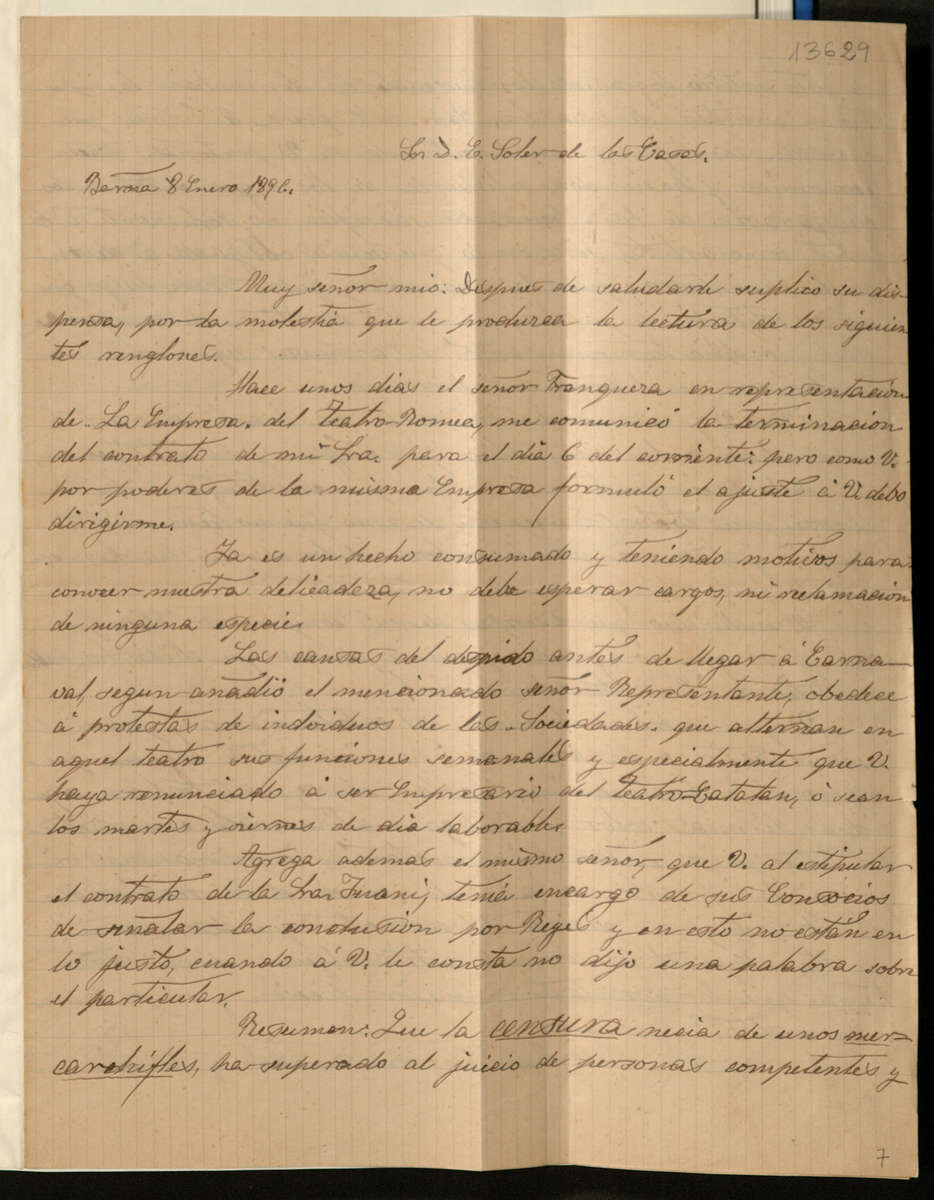 13629
Sr. D. E. Soler de las Casas.
Barna 8 Enero 1896.
Muy señor mio: Despues de saludarle suplico su dis-
pensa, por la molestia que le produzca la lectura de los siguien
tes renglones.
Hace unos dias el señor Franqueza en representación
de "La Empresa" del Teatro Romea, me comunicó la terminacion
del contrato de mi Sra. para el dia 6 del corriente: pero como V.
por poderes de la misma Empresa formuló el ajuste á V. debo
dirigirme.
Ya es un hecho consumado y teniendo motivos para
conocer nuestra delicadeza, no debe esperar cargos, ni reclamacion
de ninguna especie.
Las causas del despido antes de llegar á Carna-
val, segun añadió el mencionado señor Representante, obedece
á protestas de individuos de las "Sociedades" que alternan en
aquel teatro sus funciones semanales y especialmente que V.
haya renunciado á ser Empresario del Teatro-Catalan, ó sean
los martes y viernes de dia laborable.
Agrega ademas el mismo señor, que V. al estipular
el contrato de la Sra. Juani, tenia encargo de sus Consocios
de señalar la conclusión por Reyes y en esto no están en
lo justo, cuando á V. le consta no dijo una palabra sobre
el particular.
Resumen: Que la censura necia de unos mer-
carchifles, ha superado al juicio de personas competentes y
7